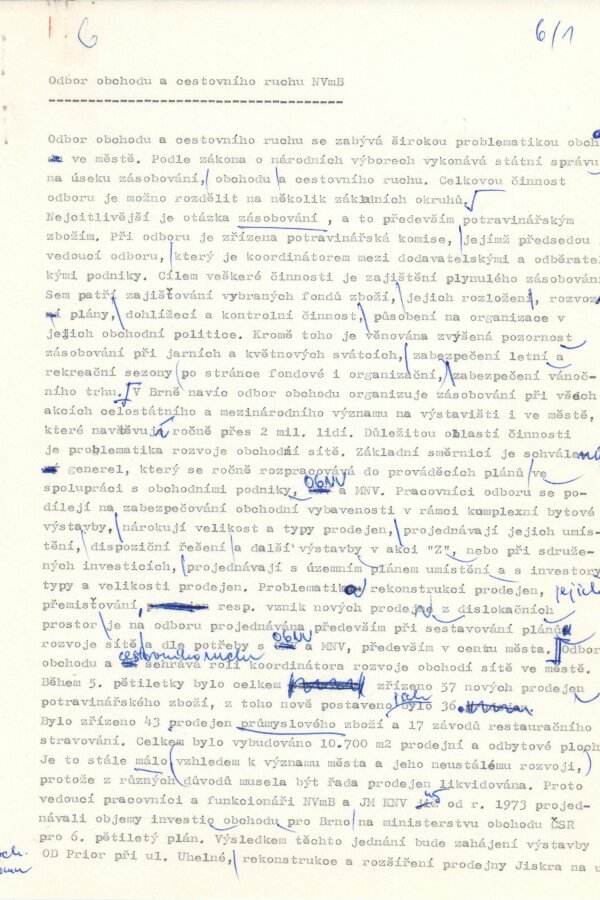 6
6/1
Odbor obchodu a cestovního ruchu NVmB
Odbor obchodu a cestovního ruchu se zabývá širokou problematikou obch
du ve městě. Podle zákona o národních výborech vykonává státní správu
na úseku zásobování, obchodu a cestovního ruchu. Celkovou činnost
odboru je možno rozdělit na několik základních okruhů.
Nejcitlivější je otázka zásobování , a to především potravinářským
zbožím. Při odboru je zřízena potravinářská komise, jejímž předsedou
vedoucí odboru, který je koordinátorem mezi dodavatelskými a odběratel
kými podniky. Cílem veškeré činnosti je zajištění plynulého zásobování
Sem patří zajišťování vybraných fondů zboží, jejich rozložení, rozvoz
plány, dohlížecí a kontrolní činnost, působení na organizace v
jejich obchodní politice. Kromě toho je věnována zvýšená pozornost
zásobování při jarních a květnových svátcích, zabezpečení letní a
rekreační sezony po stránce fondové i organizační, zabezpečení vánoč-
ního trhu. V Brně navíc odbor obchodu organizuje zásobování při všech
akcích celostátního a mezinárodního významu na výstavišti i ve městě,
které navštěvují ročně přes 2 mil. lidí. Důležitou oblastí činnosti
je problematika rozvoje obchodní sítě. Základní směrnicí je schválen
generel, který se ročně rozpracovává do prováděcích plánů ve
spolupráci s obchodními podniky, ObNV a MNV. Pracovníci odboru se po-
dílejí na zabezpečování obchodní vybavenosti v rámci komplexní bytové
výstavby, nárokují velikost a typy prodejen, projednávají jejich umís-
tění, dispoziční řešení a další výstavby v akci "Z", nebo při sdruže-
ných investicích, projednávají s územním plánem umístění a s investory
typy a velikosti prodejen. Problematika rekonstrukcí prodejen, jejich
přemisťování, resp. vznik nových prodejen z dislokačních
prostor je na odboru projednávána především při sestavování plánů
rozvoje sítě a dle potřeby s ObNV a MNV, především v centu města. Odbor
obchodu a cestovního ruchu sehrává roli koordinátora rozvoje obchodí sítě ve městě.
Během 5. pětiletky bylo celkem zřízeno 57 nových prodejen
potravinářského zboží, z toho nově postaveno jich bylo 36
Bylo zřízeno 43 prodejen průmyslového zboží a 17 závodů restauračního
stravování. Celkem bylo vybudováno 10.700 m2 prodejní a odbytové ploch
Je to stále málo vzhledem k významu města a jeho neustálému rozvoji,
protože z různých důvodů musela být řada prodejen likvidována. Proto
vedoucí pracovníci a funkcionáři NVmB a JM KNV už od r. 1973 projed-
návali objemy investic obchodu pro Brno na ministerstvu obchodu ČSR
pro 6. pětiletý plán. Výsledkem těchto jednání bude zahájení výstavby
OD Prior při ul. Uhelné, rekonstrukce a rozšíření prodejny Jiskra na u